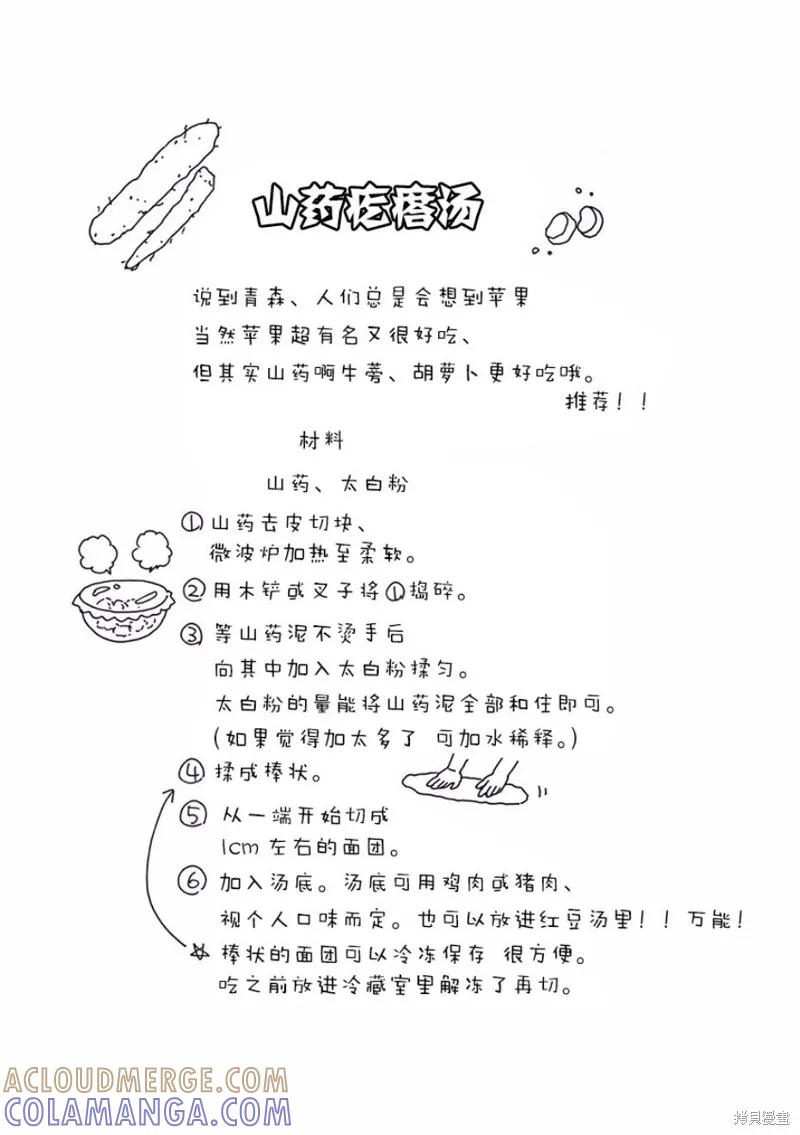 山药疙瘩汤
说到青森、人们总是会想到苹果
当然苹果超有名又很好吃、
但其实山药啊牛蒡、胡萝卜更好吃哦。
推荐！！
材料
山药、太白粉
①山药去皮切块、
微波炉加热至柔软。
②用木铲或叉子将①捣碎。
③等山药泥不烫手后
向其中加入太白粉揉匀。
太白粉的量能将山药泥全部和住即可。
(如果觉得加太多了 可加水稀释。)
④揉成棒状。
⑤从一端开始切成
1cm左右的面团。
⑥加入汤底。汤底可用鸡肉或猪肉、
视个人口味而定。也可以放进红豆汤里！！万能！
☆棒状的面团可以冷冻保存 很方便。
吃之前放进冷藏室里解冻了再切。
ACLOUDMERGE.COM
COLAMANGA.COM
拷貝漫畫